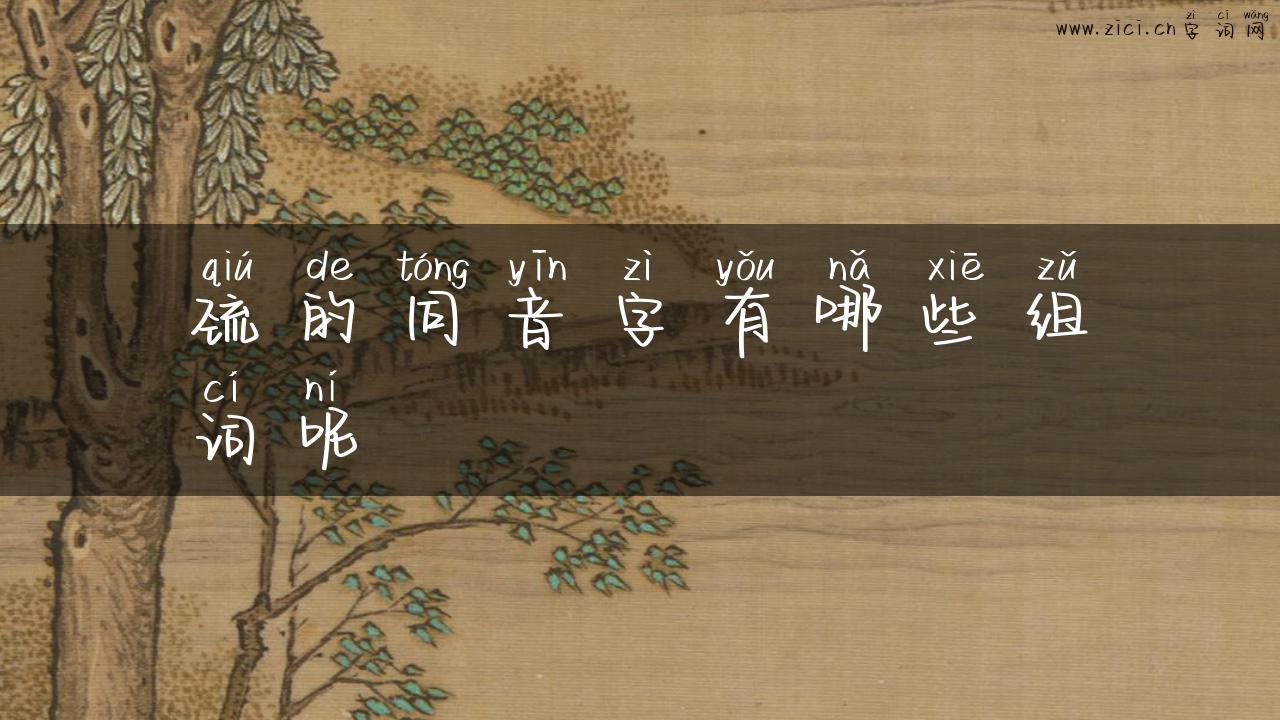 zì cí wǎng
www.zici.cn 字词网
qiú de tóng yīn zì yǒu nǎ xiē zǔ
巯的同音字有哪些组
cí ní
词呢